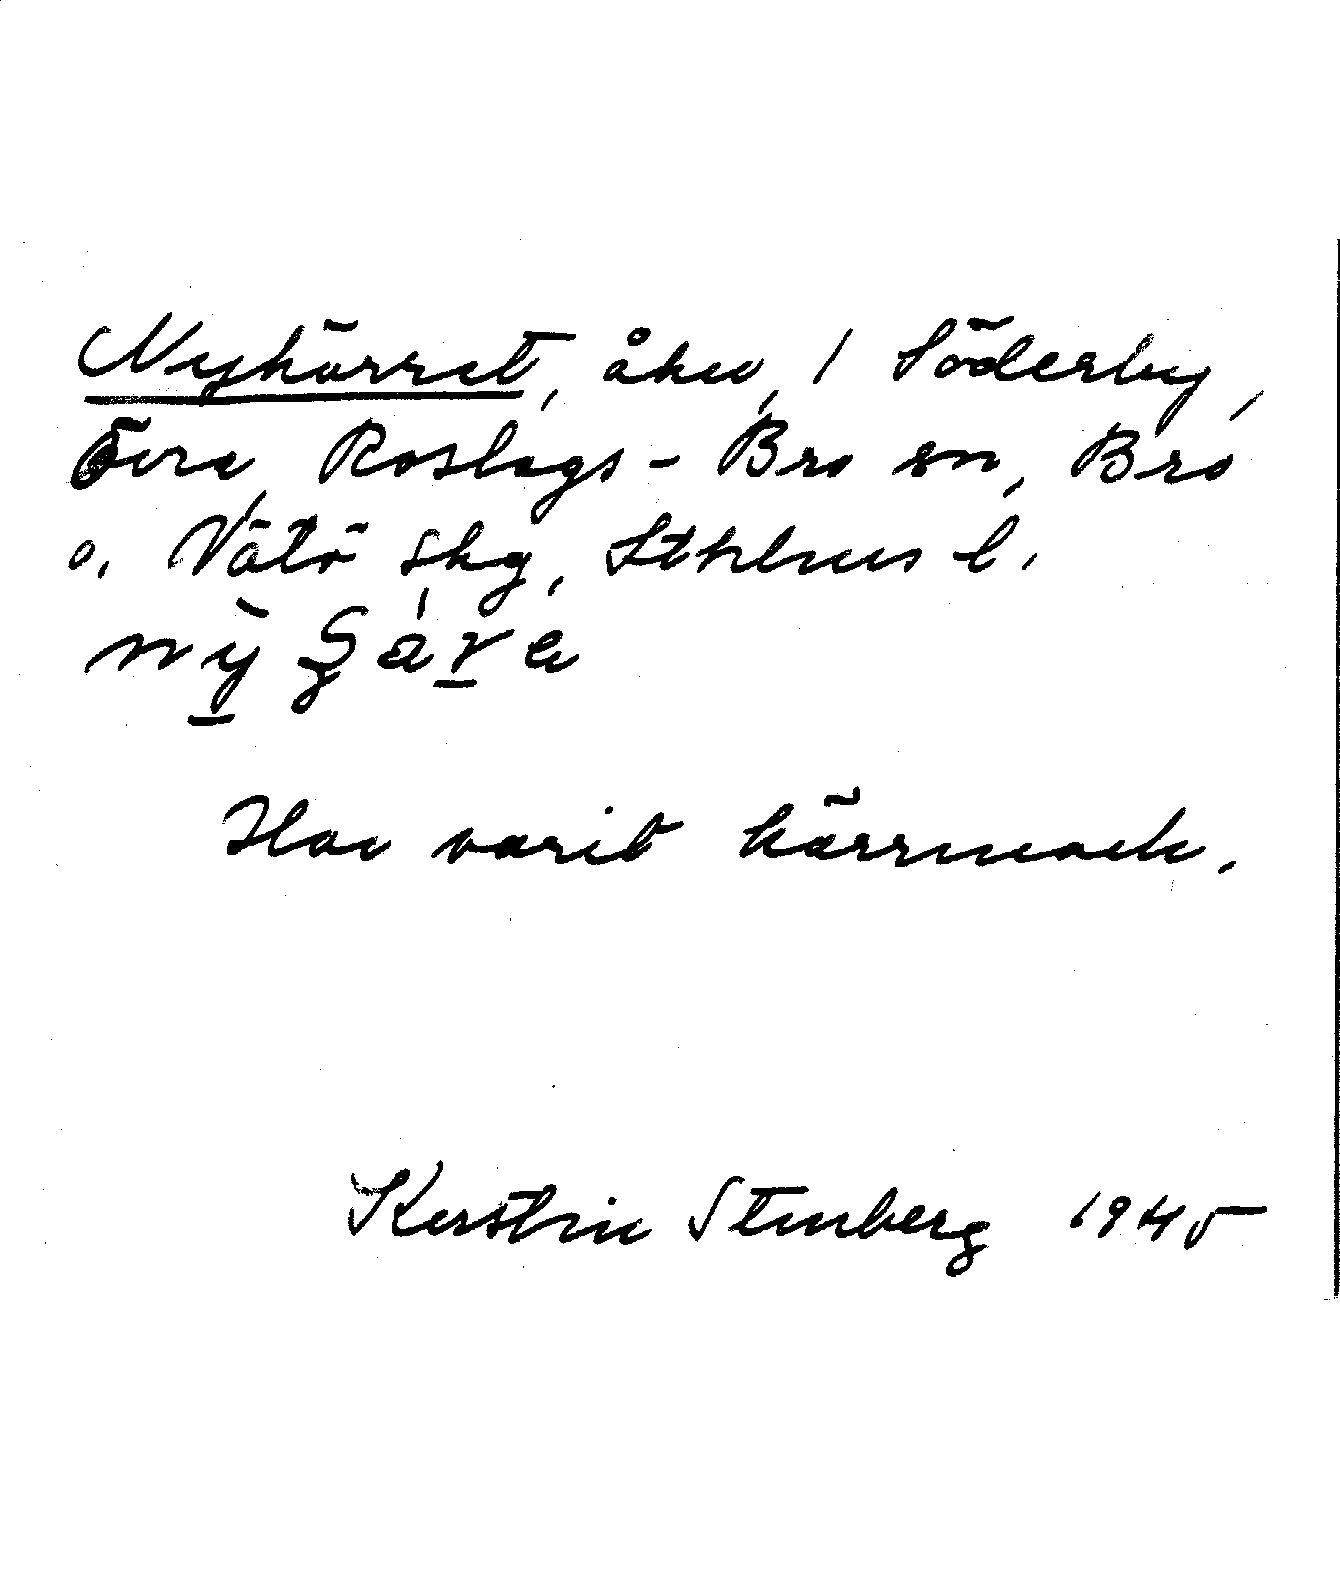 Nykärret, åker, / Söderby,
Övra, Roslags-Bro sn, Bro
o. Vätö skg, Sthlms l.
Har varit kärrmark.
Kerstin Stenberg 1945